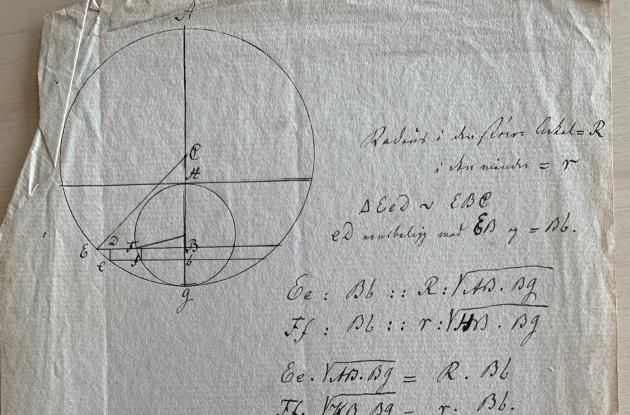 A
C
H
E D F B
e f b
g
Radius i den större Cirkel = R
i den mindre = r
Δ EeD ~ EBC
eD = Bb.
Ee : Bb :: R : √AB. Bg
Ff : Bb :: r : √HB. Bg
Ee. √AB. Bg = R. Bb
Ff. √HB. Bg = r. Bb.